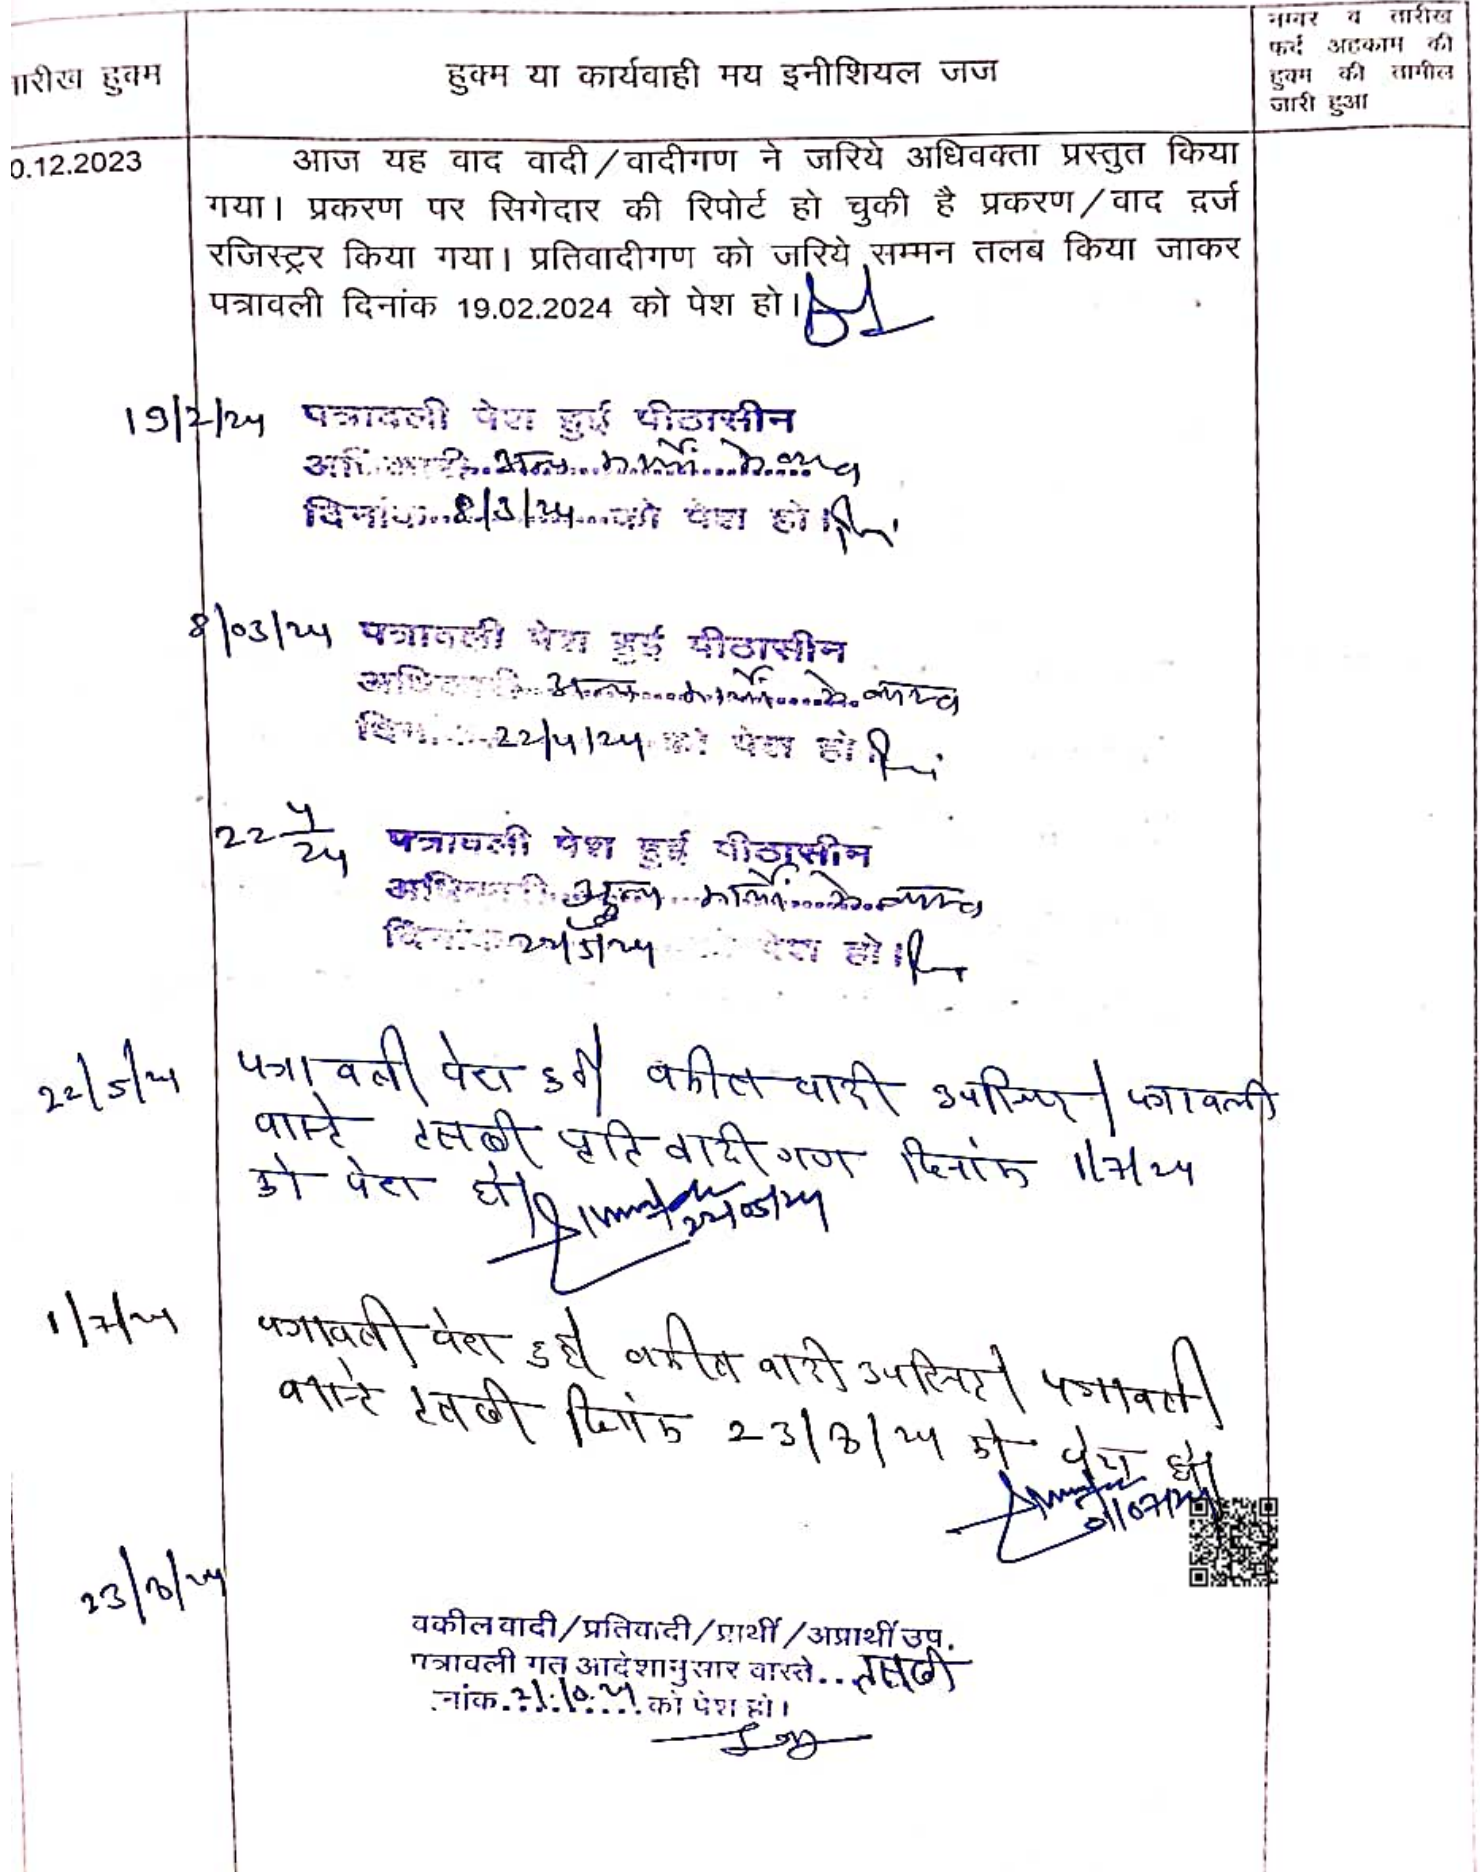 तारीख हुक्म
हुक्म या कार्यवाही मय इनीशियल जज
नम्बर व तारीख
फर्द अहकाम की
हुक्म की तामील
जारी हुआ
0.12.2023
आज यह वाद वादी/वादीगण ने जरिये अधिवक्ता प्रस्तुत किया
गया। प्रकरण पर सिगेदार की रिपोर्ट हो चुकी है प्रकरण/वाद दर्ज
रजिस्ट्रर किया गया। प्रतिवादीगण को जरिये सम्मन तलब किया जाकर
पत्रावली दिनांक 19.02.2024 को पेश हो।
19/2/24 पत्रावली पेश हुई पीठासीन
अधिकारी अन्य कार्यों में व्यस्त
दिनांक 8/3/24 को पेश हो।
8/03/24 पत्रावली पेश हुई पीठासीन
अधिकारी अन्य कार्यों में व्यस्त
दिनांक 22/4/24 को पेश हो।
22 4/24 पत्रावली पेश हुई पीठासीन
अधिकारी अन्य कार्यों में व्यस्त
दिनांक 22/5/24 को पेश हो।
22/5/24 पत्रावली पेश हुई वकील वादी उपस्थित। पत्रावली
वास्ते तलबी प्रतिवादीगण दिनांक 1/7/24
को पेश हो।
22/05/24
1/7/24 पत्रावली पेश हुई वकील वादी उपस्थित। पत्रावली
वास्ते तलबी दिनांक 23/8/24 को पेश हो।
01/07/24
23/8/24
वकील वादी/प्रतिवादी/प्रार्थी/अप्रार्थी उप.
पत्रावली गत आदेशानुसार वास्ते.. तलबी
नांक. 21.10.24 को पेश हो।